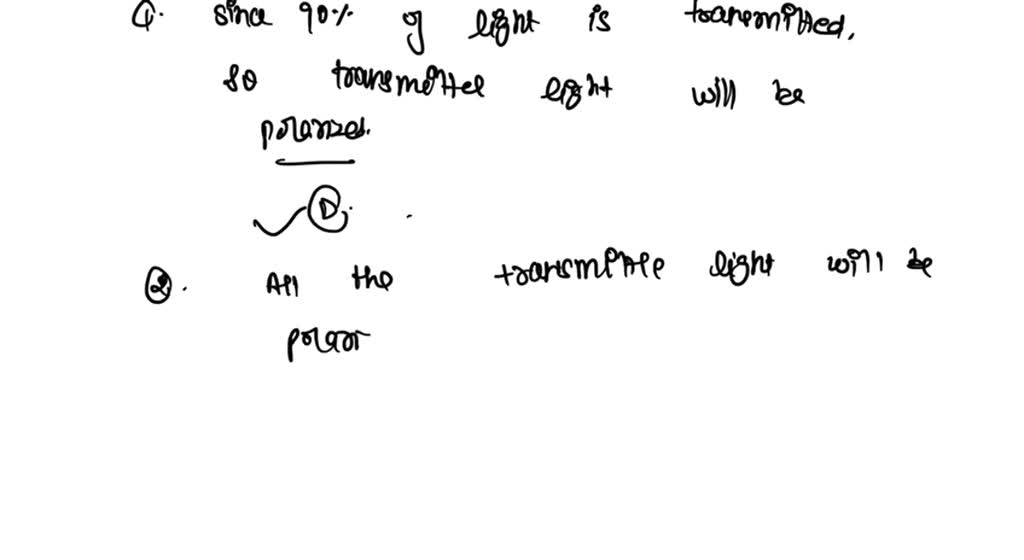 Q. since 90% of light is transmitted.
so transmitted light will be
polarized.
D.
2. All the transmitte light will be
polar